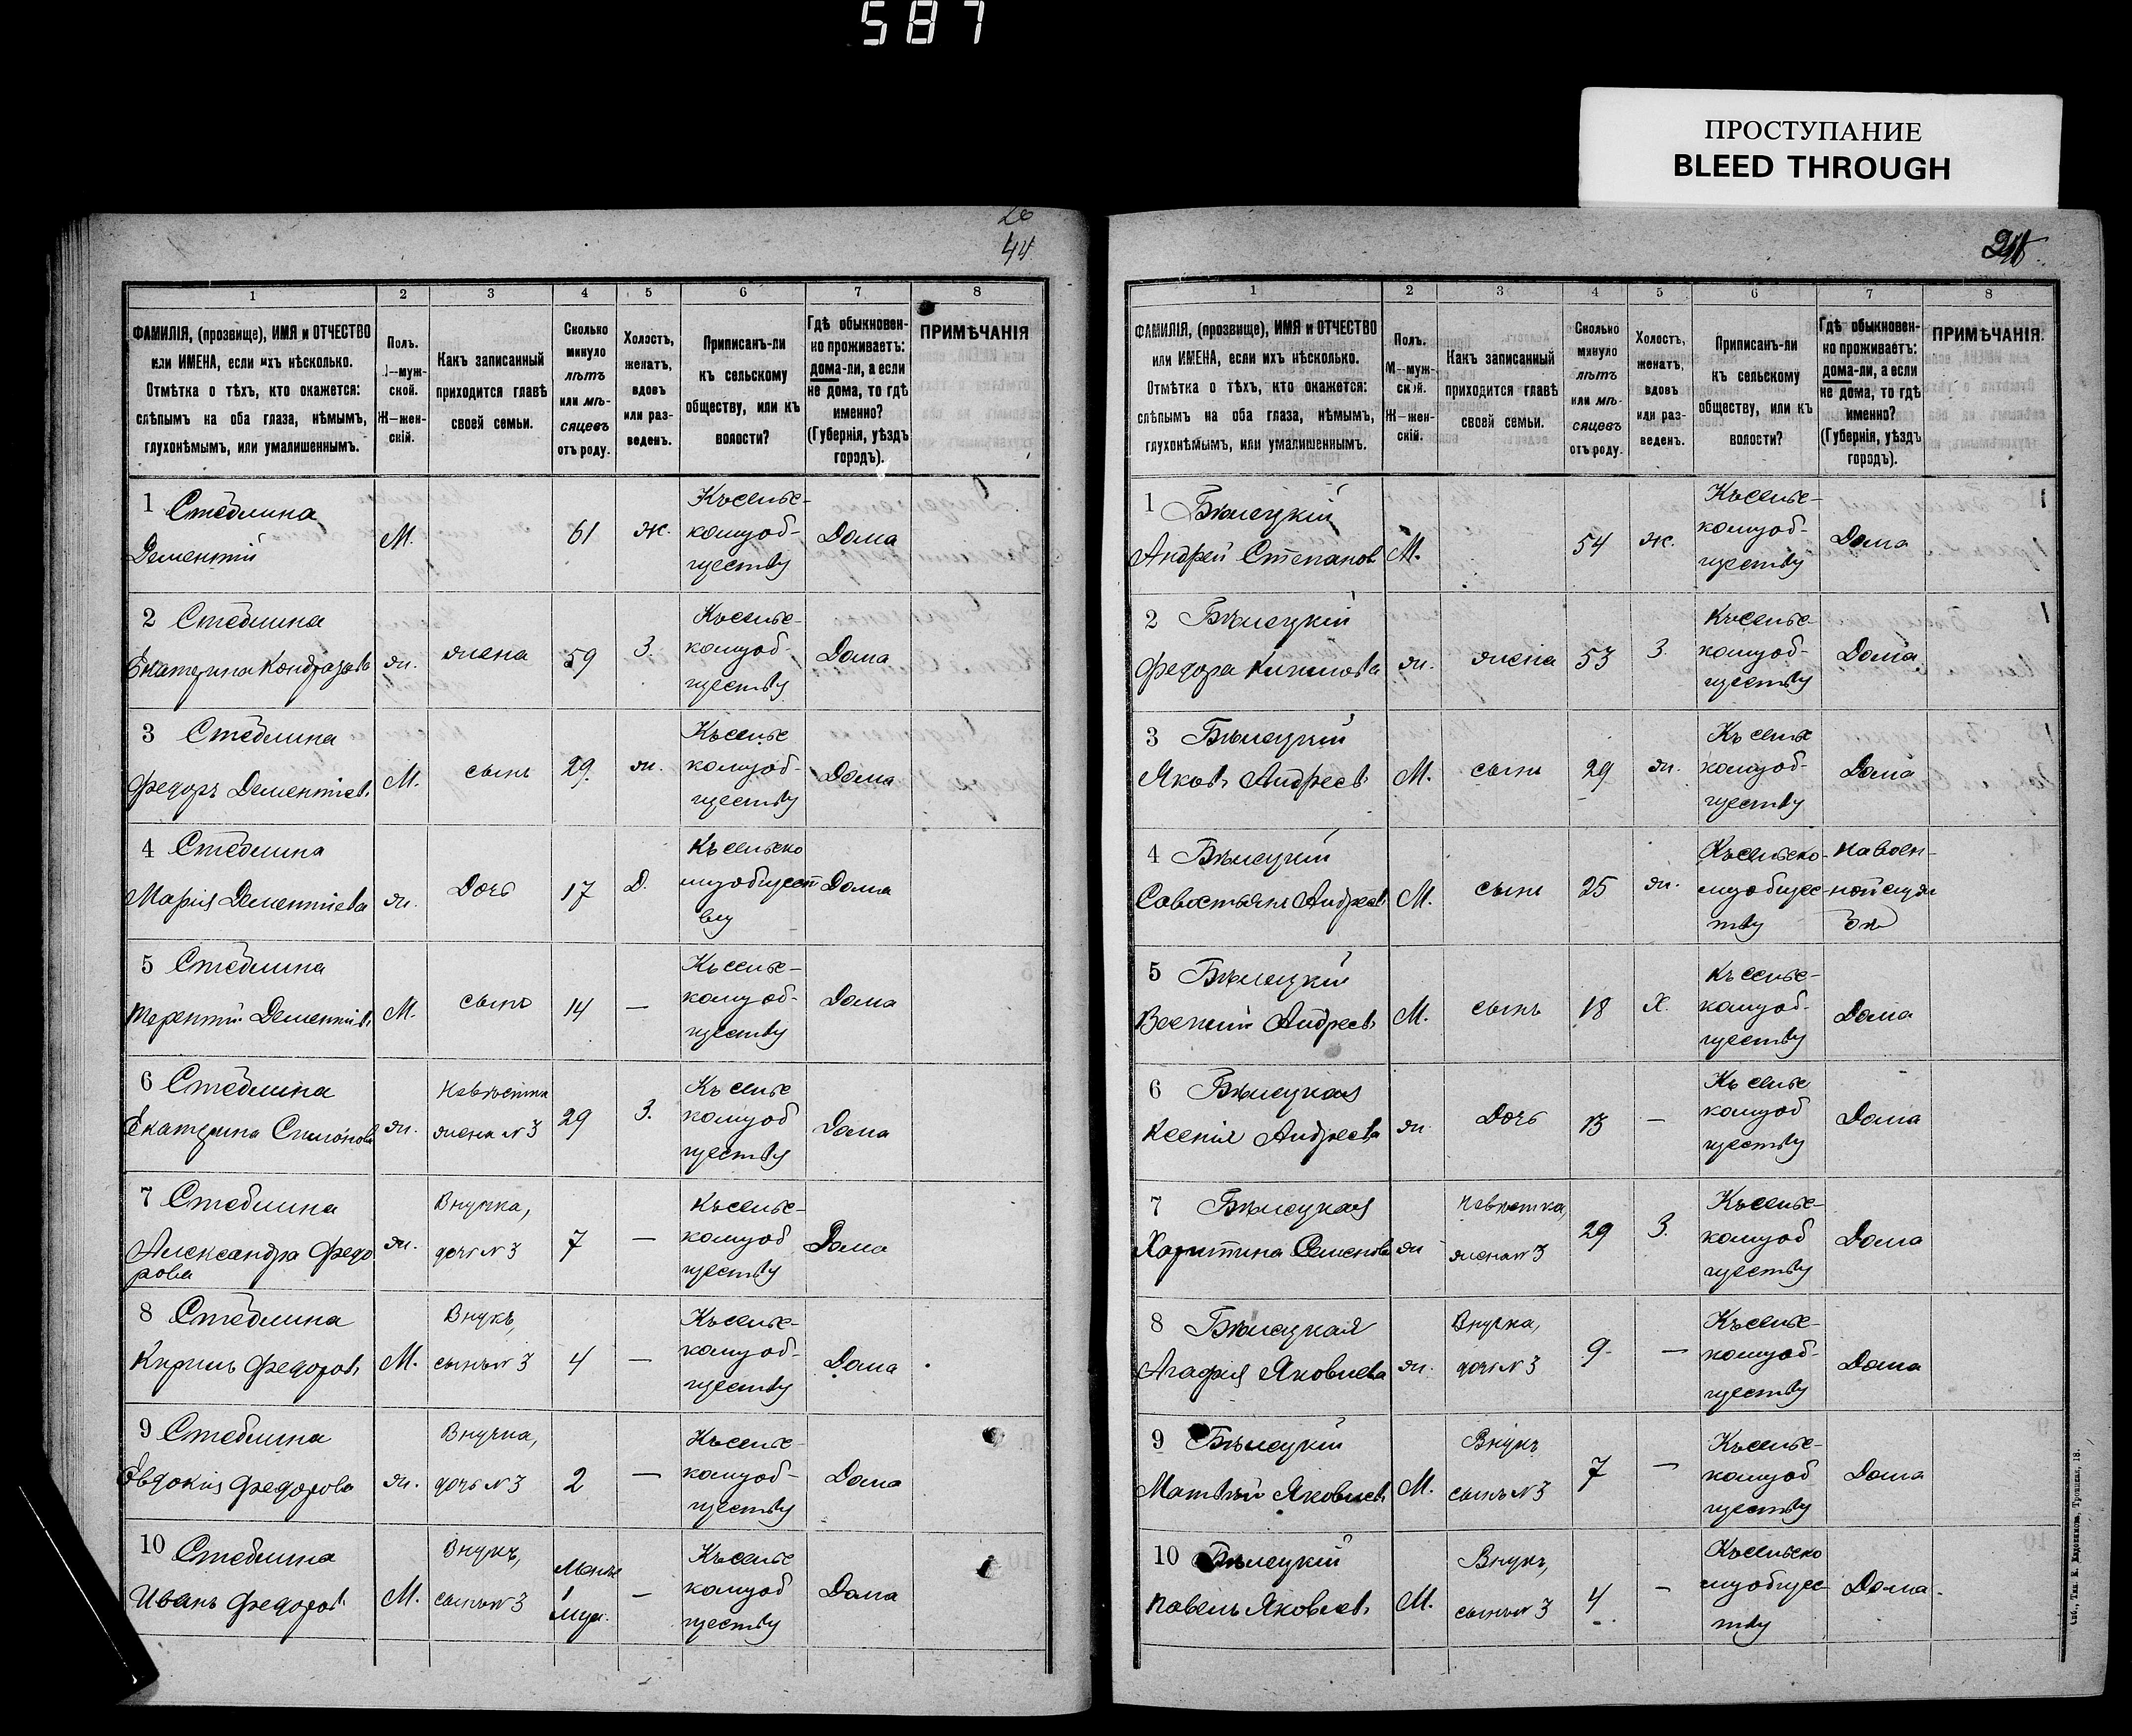 587
ПРОСТУПАНИЕ
BLEED THROUGH
26
44
1 2 3 4 5 6 7 8
ФАМИЛІЯ, (прозвище), ИМЯ и ОТЧЕСТВО
или ИМЕНА, если ихъ нѣсколько.
Отмѣтка о тѣхъ, кто окажется:
слѣпымъ на оба глаза, нѣмымъ,
глухонѣмымъ, или умалишеннымъ.
Полъ.
М—муж-
ской.
Ж—жен-
скій.
Какъ записанный
приходится главѣ
своей семьи.
Сколько
минуло
лѣтъ
или мѣ-
сяцевъ
отъ роду.
Холостъ,
женатъ,
вдовъ
или раз-
веденъ.
Приписанъ-ли
къ сельскому
обществу, или къ
волости?
Гдѣ обыкновен-
но проживаетъ:
дома-ли, а если
не дома, то гдѣ
именно?
(Губернія, уѣздъ
городъ).
ПРИМѢЧАНІЯ
1 Стеблина
Дементій
М.
61
ж.
Къ сельс-
кому об-
ществу
Дома
2 Стеблина
Екатерина Кондратова
ж.
жена
59
З.
Къ сельс-
кому об-
ществу
Дома
3 Стеблина
Федоръ Дементіевъ
М.
сынъ
29
ж.
Къ сельс
кому об-
ществу
Дома
4 Стеблина
Марія Дементіева
ж.
Дочь
17
Д.
Къ сельско
му общест
ву
Дома
5 Стеблина
Терентій Дементіевъ
М.
сынъ
14
—
Къ сельс-
кому об-
ществу
Дома
6 Стеблина
Екатерина Симонова
ж.
Невѣстка
жена N 3
29
З.
Къ сельс
кому об
ществу
Дома
7 Стеблина
Александра Федо
рова
ж.
Внучка,
дочь N 3
7
—
Къ сельс-
кому об
ществу
Дома
8 Стеблина
Кирилъ Федоровъ
М.
Внукъ,
сынъ N 3
4
—
Къ сельс-
кому об-
ществу
Дома
9 Стеблина
Евдокія Федорова
ж.
Внучка,
дочь N 3
2
—
Къ сельс-
кому об-
ществу
Дома
10 Стеблина
Иванъ Федоровъ
М.
Внукъ,
сынъ N 3
Менье
1
—
Къ сельс
кому об
ществу
Дома
1 2 3 4 5 6 7 8
ФАМИЛІЯ, (прозвище), ИМЯ и ОТЧЕСТВО
или ИМЕНА, если ихъ нѣсколько.
Отмѣтка о тѣхъ, кто окажется:
слѣпымъ на оба глаза, нѣмымъ,
глухонѣмымъ, или умалишеннымъ.
Полъ.
М—муж-
ской.
Ж—жен-
скій.
Какъ записанный
приходится главѣ
своей семьи.
Сколько
минуло
лѣтъ
или мѣ-
сяцевъ
отъ роду.
Холостъ,
женатъ,
вдовъ
или раз-
веденъ.
Приписанъ-ли
къ сельскому
обществу, или къ
волости?
Гдѣ обыкновен-
но проживаетъ:
дома-ли, а если
не дома, то гдѣ
именно?
(Губернія, уѣздъ
городъ).
ПРИМѢЧАНІЯ.
1 Бѣлецкій
Андрей Степановъ
М.
54
ж.
Къ сельс-
кому об-
ществу
Дома
2 Бѣлецкій
Федора Кирилова
ж.
жена
53
З.
Къ сельс-
кому об-
ществу
Дома
3 Бѣлецкій
Яковъ Андреевъ
М.
сынъ
29
ж.
Къ сельс
кому об-
ществу
Дома
4 Бѣлецкій
Совостьянъ Андреевъ
М.
сынъ
25
ж.
Къ сельско-
му общес-
тву
На воен-
ной служ
бѣ
5 Бѣлецкій
Андреевъ
М.
сынъ
18
Х.
Къ сельс-
кому об-
ществу
Дома
6 Бѣлецкая
Ксенія Андреева
ж.
Дочь
13
—
Къ сельс
кому об
ществу
Дома
7 Бѣлецкая
Харитина Семенова
ж
Невѣстка,
жена N 3
29
З.
Къ сельс-
кому об
ществу
Дома
8 Бѣлецкая
Агафія Яковлева
ж.
Внучка,
дочь N 3
9
—
Къ сельс-
кому об-
ществу
Дома
9 Бѣлецкій
Матвѣй Яковлевъ
М.
Внукъ
сынъ N 3
7
—
Къ сельс-
кому об
ществу
Дома
10 Бѣлецкій
Павелъ Яковлевъ
М.
Внукъ,
сынъ N 3
4
—
Къ сельско
му общес-
тву
Дома.
Спб., Тип. Е. Евдокимова, Троицкая, 18.